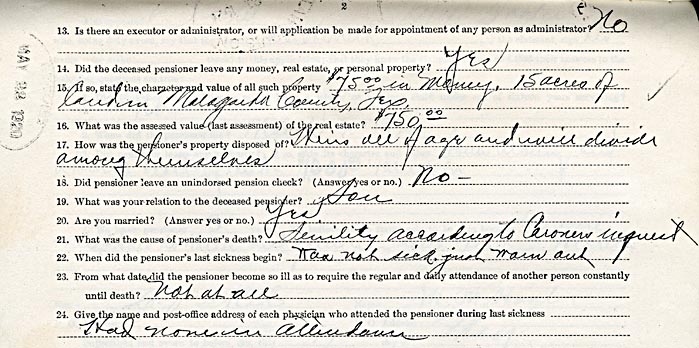 2
13. Is there an executor or administrator, or will application be made for appointment of any person as administrator? No
14. Did the deceased pensioner leave any money, real estate, or personal property? Yes
15. If so, state the character and value of all such property $75 00 in Money, 15 acres of
land in Matagorda County, Tex.
16. What was the assessed value (last assessment) of the real estate? $750.00
17. How was the pensioner's property disposed of? Heirs all of age and will divide
among themselves
18. Did pensioner leave an unindorsed pension check? (Answer yes or no.) No -
19. What was your relation to the deceased pensioner? Son
20. Are you married? (Answer yes or no.) Yes
21. What was the cause of pensioner's death? Senility according to Coroners inquest
22. When did the pensioner's last sickness begin? Was not sick just worn out
23. From what date did the pensioner become so ill as to require the regular and daily attendance of another person constantly
until death? Not at all
24. Give the name and post-office address of each physician who attended the pensioner during last sickness
Had none in Attendance